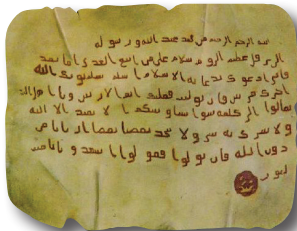 بسم الله الرحمن الرحيم من محمد عبد الله ورسوله
الى هرقل عظيم الروم سلام على من اتبع الهدى اما بعد
فانى ادعوك بدعاية الاسلام اسلم تسلم يوتك الله
اجرك مرتين فان توليت فعليك اثم ويا اهل
تعالوا الى كلمة سوا بيننا وبينكم الا نعبد الا الله
ولا نشرك به شيا ولا يتخذ بعضنا بعضا اربابا من
دون الله فان تولوا فقولوا اشهدوا بانا مس
لمون